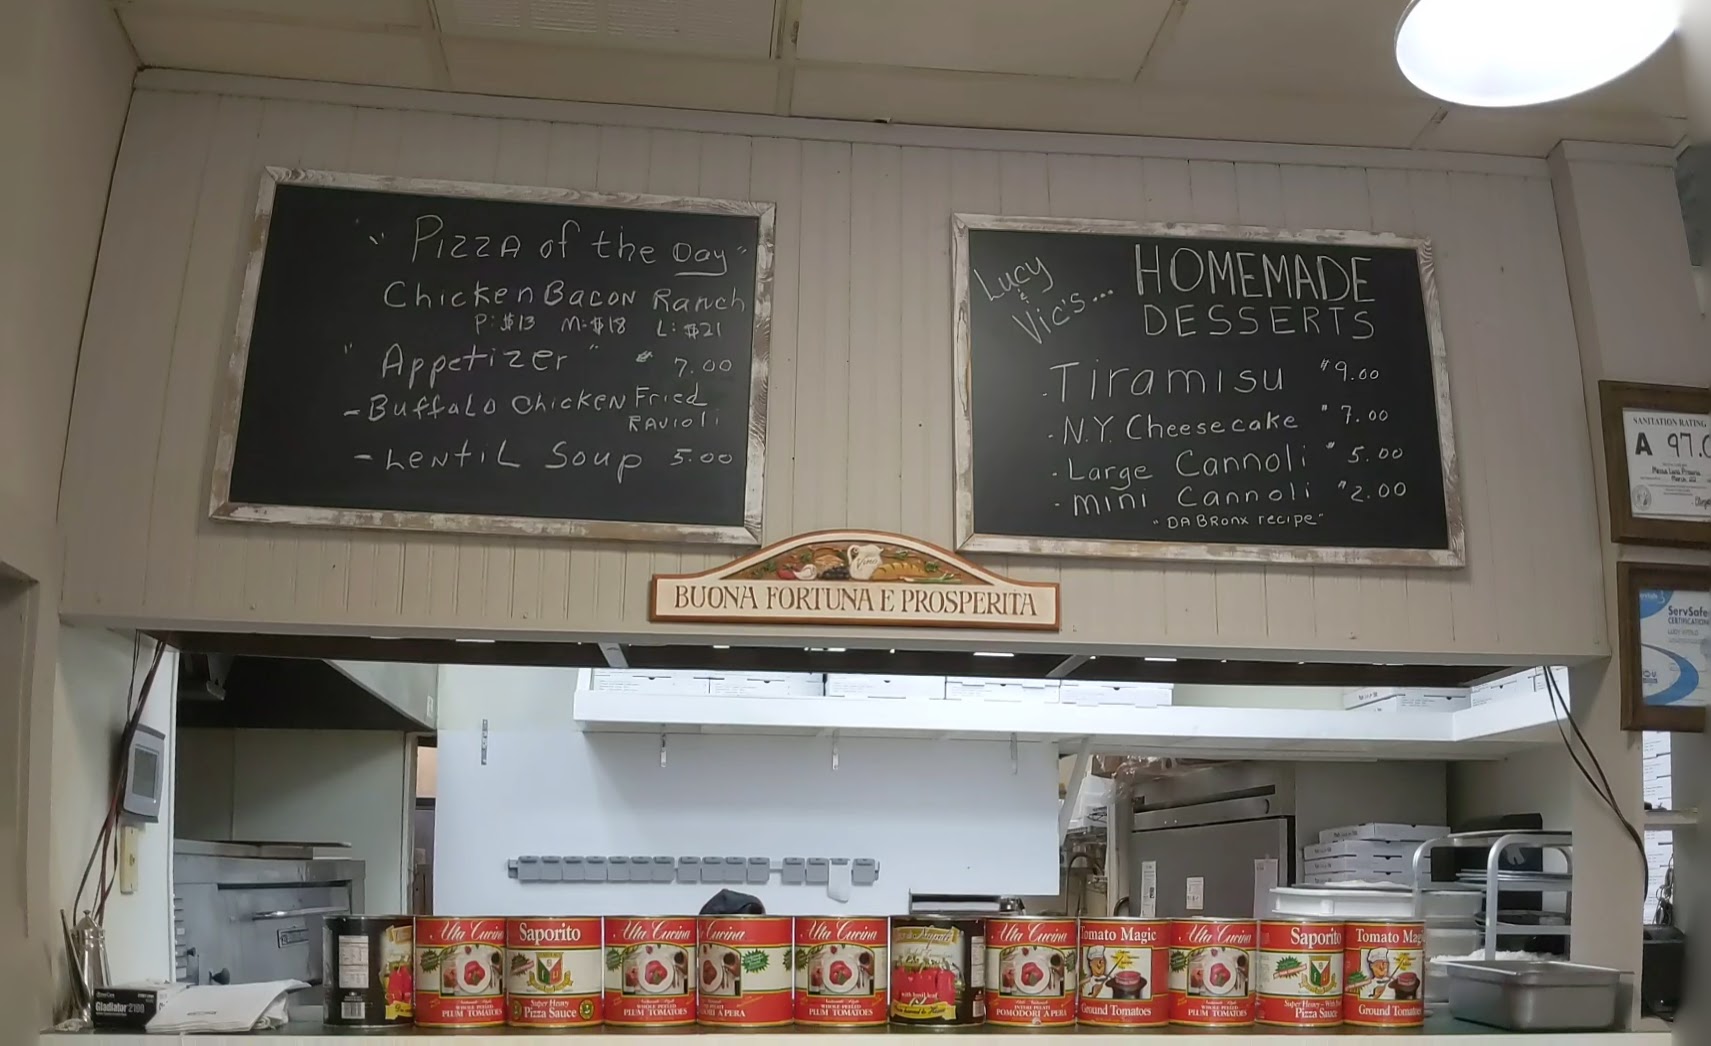 "Pizza of the Day"
Chicken Bacon Ranch
P: $13 M: $18 L: $21
"Appetizer" $ 7.00
- Buffalo Chicken Fried
Ravioli
- Lentil Soup 5.00
Lucy
&
Vic's...
HOMEMADE
DESSERTS
- Tiramisu $9.00
- N.Y. Cheesecake $7.00
- Large Cannoli $5.00
- mini Cannoli $2.00
"DA BRonx recipe"
SANITATION RATING
A 97.0
Vino
BUONA FORTUNA E PROSPERITA
ServSafe
CERTIFICATION
Alta Cucina
PLUM TOMATOES
Saporito
Super Heavy
Pizza Sauce
Alta Cucina
PLUM TOMATOES
Cucina
Alta Cucina
PLUM TOMATOES
Alta Cucina
POMODORI A PERA
Tomato Magic
Ground Tomatoes
Alta Cucina
PLUM TOMATOES
Saporito
Pizza Sauce
Tomato Magic
Ground Tomatoes
Gladiator 2100